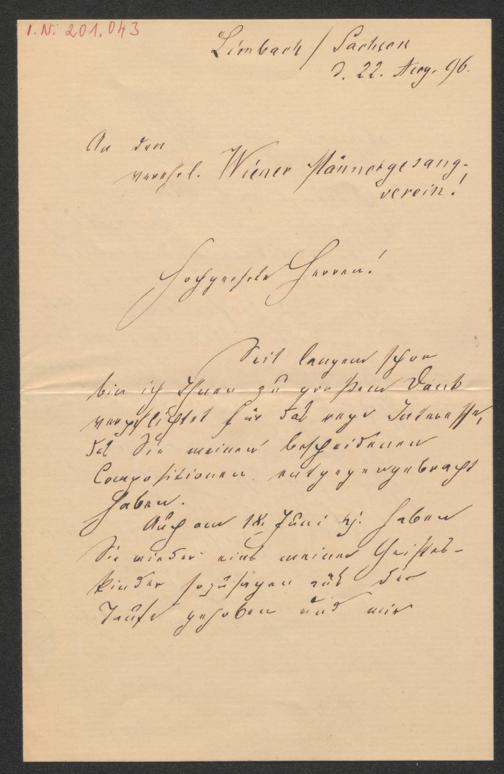 I. N. 201.043
Limbach / Sachsen
d. 22. Aug. 96.
An den
verehrl. Wiener Männergesang-
verein!
Hochgeehrte Herren!
Seit langem schon
bin ich Ihnen zu großem Dank
verpflichtet für das rege Interesse,
das Sie meinen bescheidenen
Compositionen entgegengebracht
haben.
Auch am 18. Juni cr. haben
Sie wieder eins meiner Geistes-
kinder sozusagen aus der
Taufe gehoben und mir